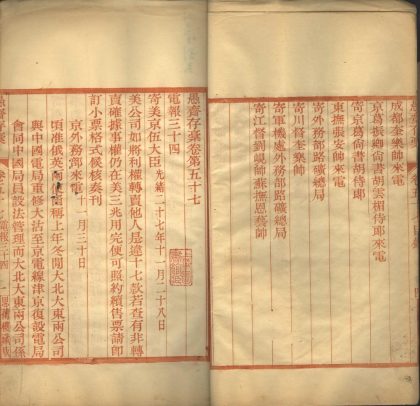 成都奎樂帥來電
京葛振卿尚書胡雲楣侍郎來電
寄京葛尚書胡侍郎
東撫張安帥來電
寄外務部路礦總局
寄川督奎樂帥
寄軍機處外務部路礦總局
寄江督劉峴帥蘇撫恩藝帥
愚齋存稾卷第五十七
電報三十四
寄美京伍大臣 光緒二十七年十一月二十八日
美公司如將利權轉賣他人是違十七款若查有非轉
賣確據事權仍在美三兆用完便可照約續售票請即
訂小票格式候核奏刊
京外務部來電 十一月三十日
頃准俄英 稱上年冬間大北大東兩公司
與中國電局重修大沽至京電線津京復設電局
會同中國局員設法管理而大北大東兩公司係
愚齋存稾